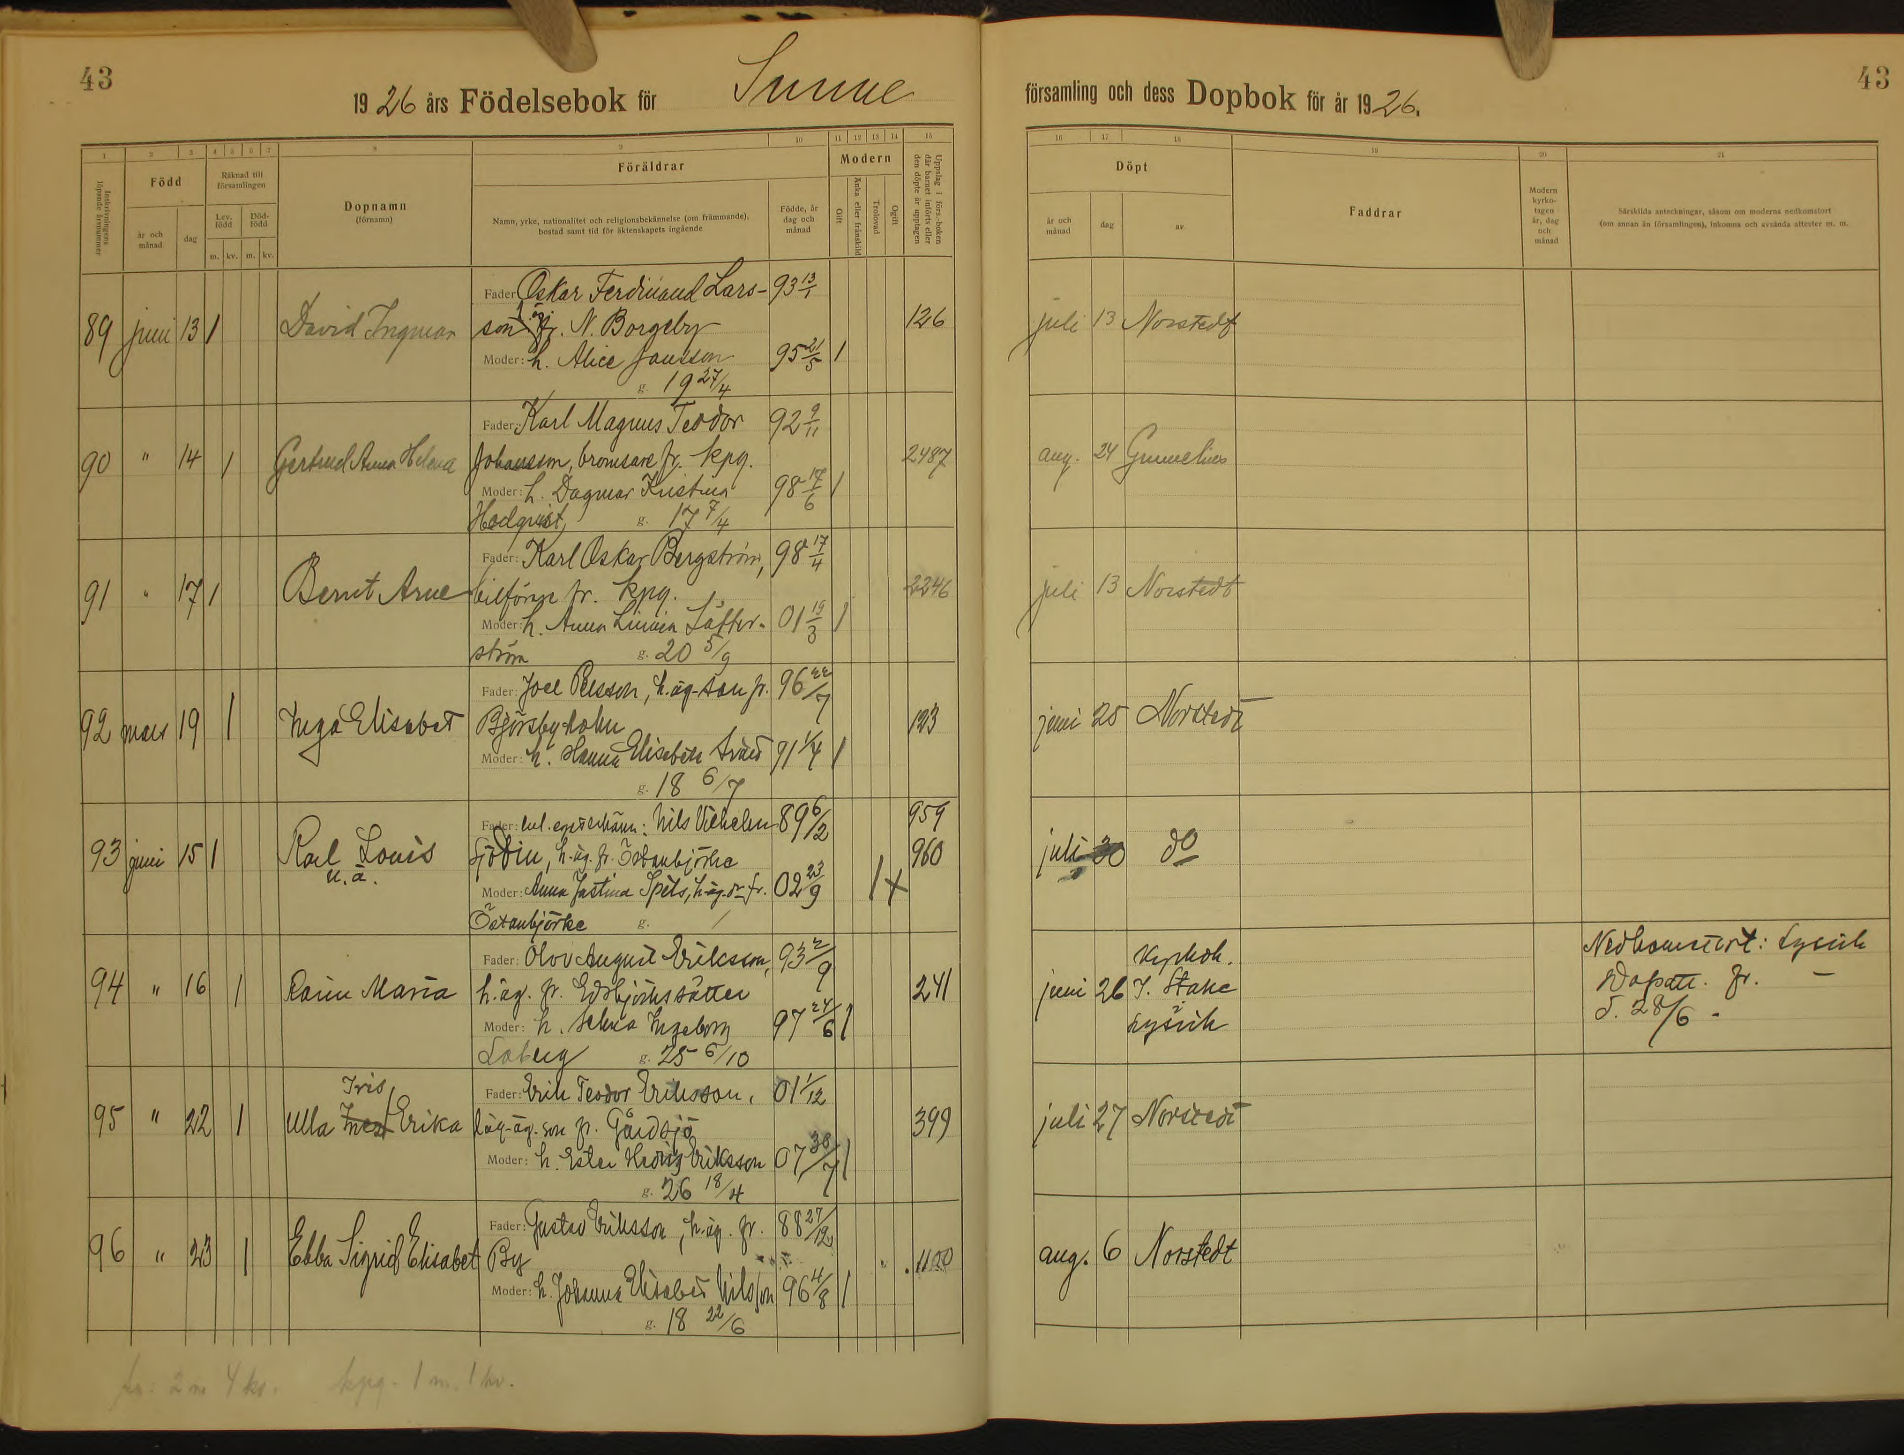 43
1926 års Födelsebok för Sunne
1 2 3 4 5 6 7 8 9 10 11 12 13 14 15
Inskrivningens löpande årsnummer
Född
Räknad till församlingen
Dopnamn
(förnamn)
Föräldrar
Modern
Uppslag i förs.-boken där barnet införts eller den döpte är upptagen
år och månad
dag
Lev. född
Död-född
m. kv. m. kv.
Namn, yrke, nationalitet och religionsbekännelse (om främmande), bostad samt tid för äktenskapets ingående
Födde, år dag och månad
Gift
Änka eller frånskild
Trolovad
Ogift
89 juni 13 1 David Ingmar
Fader: Oskar Ferdinand Lars- 93 13/1
son, fr. N. Borgeby 126
Moder: h. Alice Jansson 95 21/5 1
g. 19 27/4
90 " 14 1 Gertrud Anna Helena
Fader: Karl Magnus Teodor 92 9/11
Johansson, bromsare fr. kpg. 2487
Moder: h. Dagmar Kristina 98 17/6 1
g. 17 7/4
91 " 17 1 Bernt Arne
Fader: Karl Oskar Bergström, 98 17/4
bilförare fr. kpg. 2246
Moder: h. Anna Linnéa Sätter- 01 19/3 1
ström g. 20 5/9
92 mars 19 1 Inga Elisabet
Fader: Joel Persson, h.äg-son fr. 96 22/7
123
Moder: h. Hanna Elisabeth 91 1/4 1
g. 18 6/7
93 juni 15 1 Karl Louis
u.ä.
Fader: enl. erkänn: Nils Vilhelm 89 6/2 959
Sjödin, h.äg. fr. Östanbjörke 960
Moder: Anna Justina Spets, h.äg-dr fr. 02 23/9 1 +
Östanbjörke g. /
94 " 16 1 Karin Maria
Fader: Olov August Eriksson, 93 2/9
h.äg. fr. Edsbjörkssätter 241
Moder: h. Selma Ingeborg 97 24/6 1
g. 25 6/10
95 " 22 1 Iris
Ulla Erika
Fader: Erik Teodor Eriksson, 01 1/12
läg-äg. son fr. Gårdsjö 399
Moder: h. Ester Hedvig Eriksson 07 1
g. 26 18/4
96 " 23 1 Ebba Sigrid Elisabet
Fader: Gustav Eriksson, h.äg. fr. 88 27/12
By 1100
Moder: h. Johanna Elisabet Nilsson 96 4/8 1
g. 18 22/6
fs: 2 m 4 kv. kpg. 1 m. 1 kv.
församling och dess Dopbok för år 1926.
43
16 17 18 19 20 21
Döpt
Faddrar
Modern kyrkotagen år, dag och månad
Särskilda anteckningar, såsom om moderns nedkomstort
(om annan än församlingen), inkomna och avsända attester m. m.
år och månad
dag
av
juli 13 Norstedt
aug. 24 Gumælius
juli 13 Norstedt
juni 25 Norstedt
juli 30 do
juni 26 Kyrkoh.
J. Stake
Lysvik
Nedkomstort: Lysvik
Dopatt. fr. —
d. 28/6.
juli 27 Norstedt
aug. 6 Norstedt